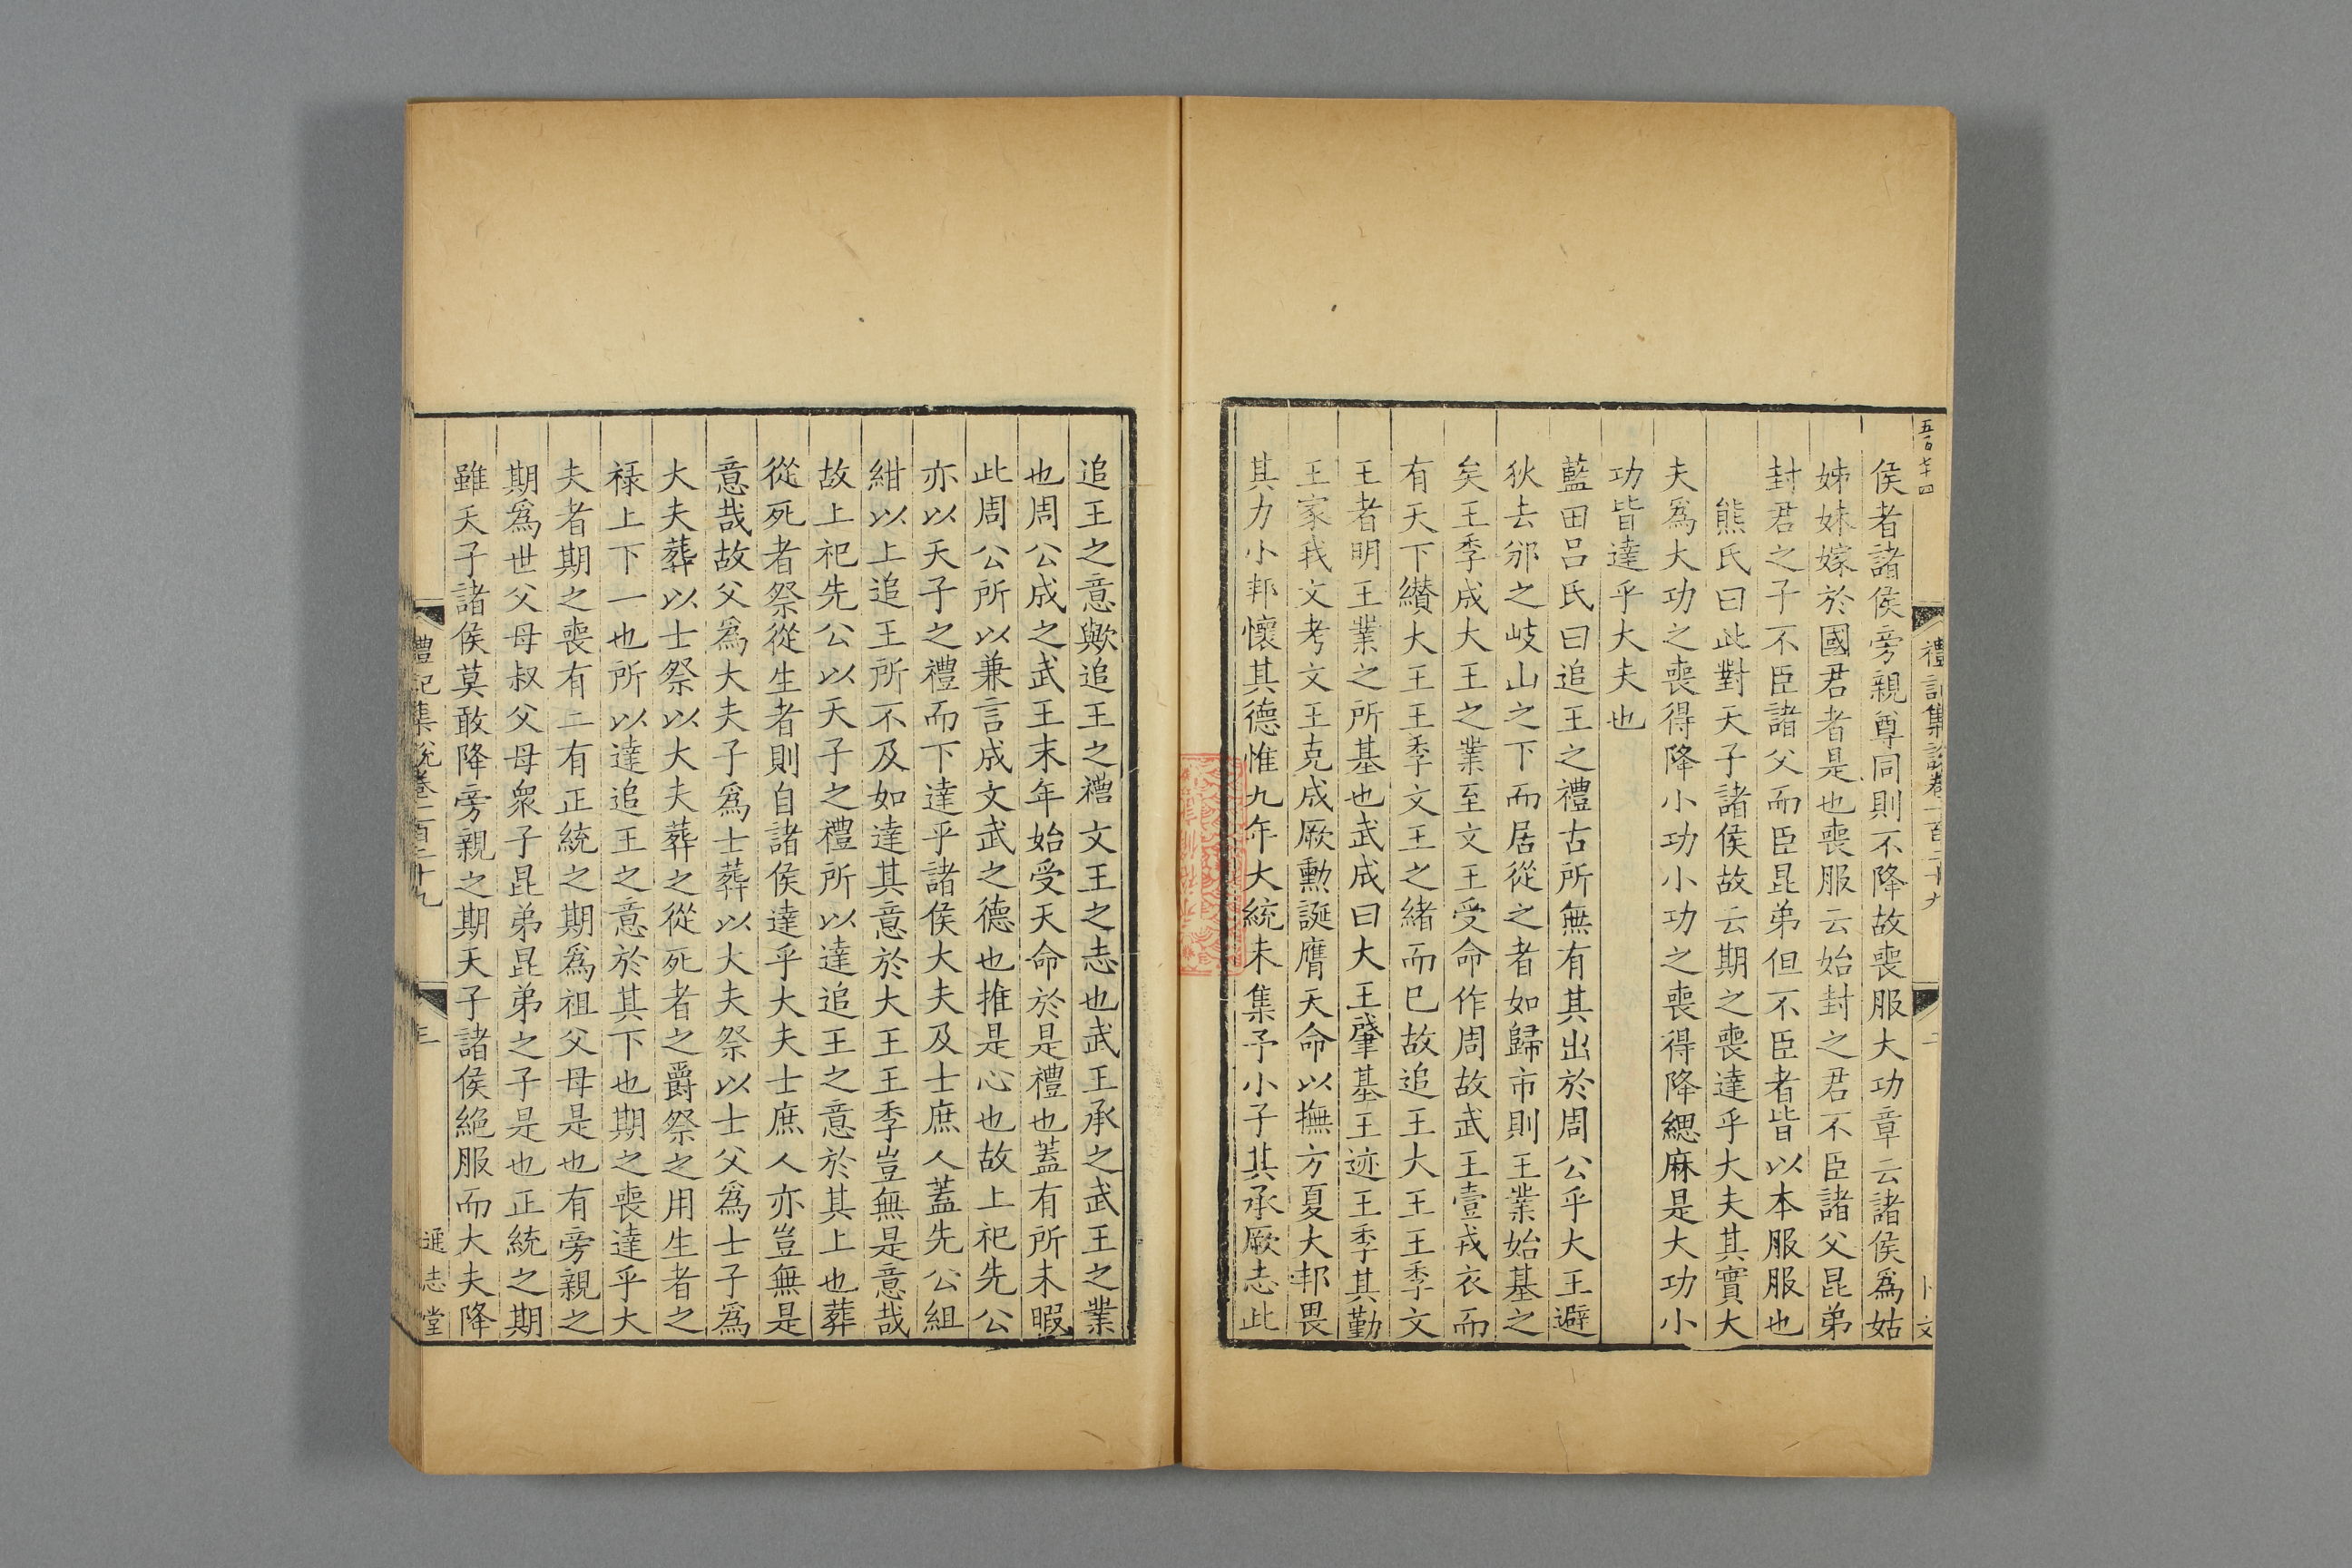 五百七十四
禮記集說卷一百二十九
二
卜文
侯者諸侯旁親尊同則不降故喪服大功章云諸侯爲姑
姊妹嫁於國君者是也喪服云始封之君不臣諸父昆弟
封君之子不臣諸父而臣昆弟但不臣者皆以本服服也
熊氏曰此對天子諸侯故云期之喪達乎大夫其實大
夫爲大功之喪得降小功小功之喪得降緦麻是大功小
功皆達乎大夫也
藍田呂氏曰追王之禮古所無有其出於周公乎大王避
狄去邠之岐山之下而居從之者如歸市則王業始基之
矣王季成大王之業至文王受命作周故武王壹戎衣而
有天下纘大王王季文王之緒而已故追王大王王季文
王者明王業之所基也武成曰大王肇基王迹王季其勤
王家我文考文王克成厥勳誕膺天命以撫方夏大邦畏
其力小邦懷其德惟九年大統未集予小子其承厥志此
追王之意歟追王之禮文王之志也武王承之武王之業
也周公成之武王末年始受天命於是禮也蓋有所未暇
此周公所以兼言成文武之德也推是心也故上祀先公
亦以天子之禮而下達乎諸侯大夫及士庶人蓋先公組
紺以上追王所不及如達其意於大王王季豈無是意哉
故上祀先公以天子之禮所以達追王之意於其上也葬
從死者祭從生者則自諸侯達乎大夫士庶人亦豈無是
意哉故父爲大夫子爲士葬以大夫祭以士父爲士子爲
大夫葬以士祭以大夫葬之從死者之爵祭之用生者之
祿上下一也所以達追王之意於其下也期之喪達乎大
夫者期之喪有二有正統之期爲祖父母是也有旁親之
期爲世父母叔父母衆子昆弟昆弟之子是也正統之期
雖天子諸侯莫敢降旁親之期天子諸侯絕服而大夫降
禮記集說卷一百二十九
三
通志堂